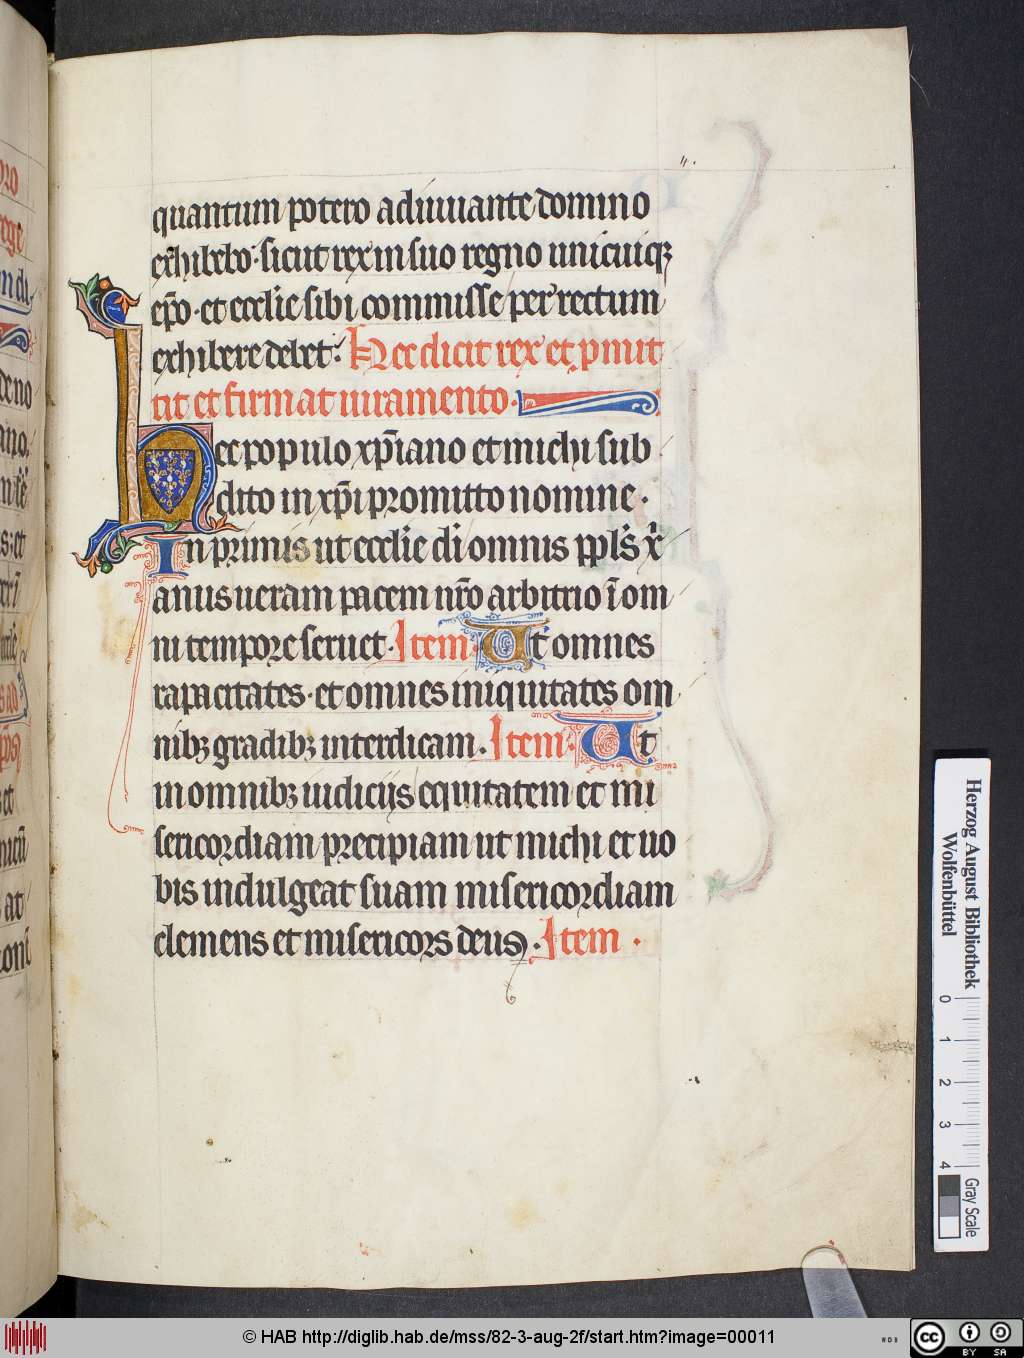 quantum potero adiuuante domino
exhibebo · sicut rex in suo regno unicuiqꝫ
ep̄o · et ecclie sibi commisse per rectum
exhibere debet · Hec dicit rex et ꝓmit
tit et firmat iuramento ·
Hec populo xp̄iano et michi sub
dito in xp̄i promitto nomine ·
In primis ut ecclie di omnis ppl̄s xp̄i
anus ueram pacem nr̄o arbitrio ī om
ni tempore seruet · Item · Ut omnes
rapacitates · et omnes iniquitates om
nibꝫ gradibꝫ interdicam · Item · Ut
in omnibꝫ iudiciis equitatem et mi
sericordiam precipiam ut michi et uo
bis indulgeat suam misericordiam
clemens et misericors deus · Item ·
4.
Herzog August Bibliothek
Wolfenbüttel
0 1 2 3 4
Gray Scale
© HAB http://diglib.hab.de/mss/82-3-aug-2f/start.htm?image=00011
WDB
cc BY SA